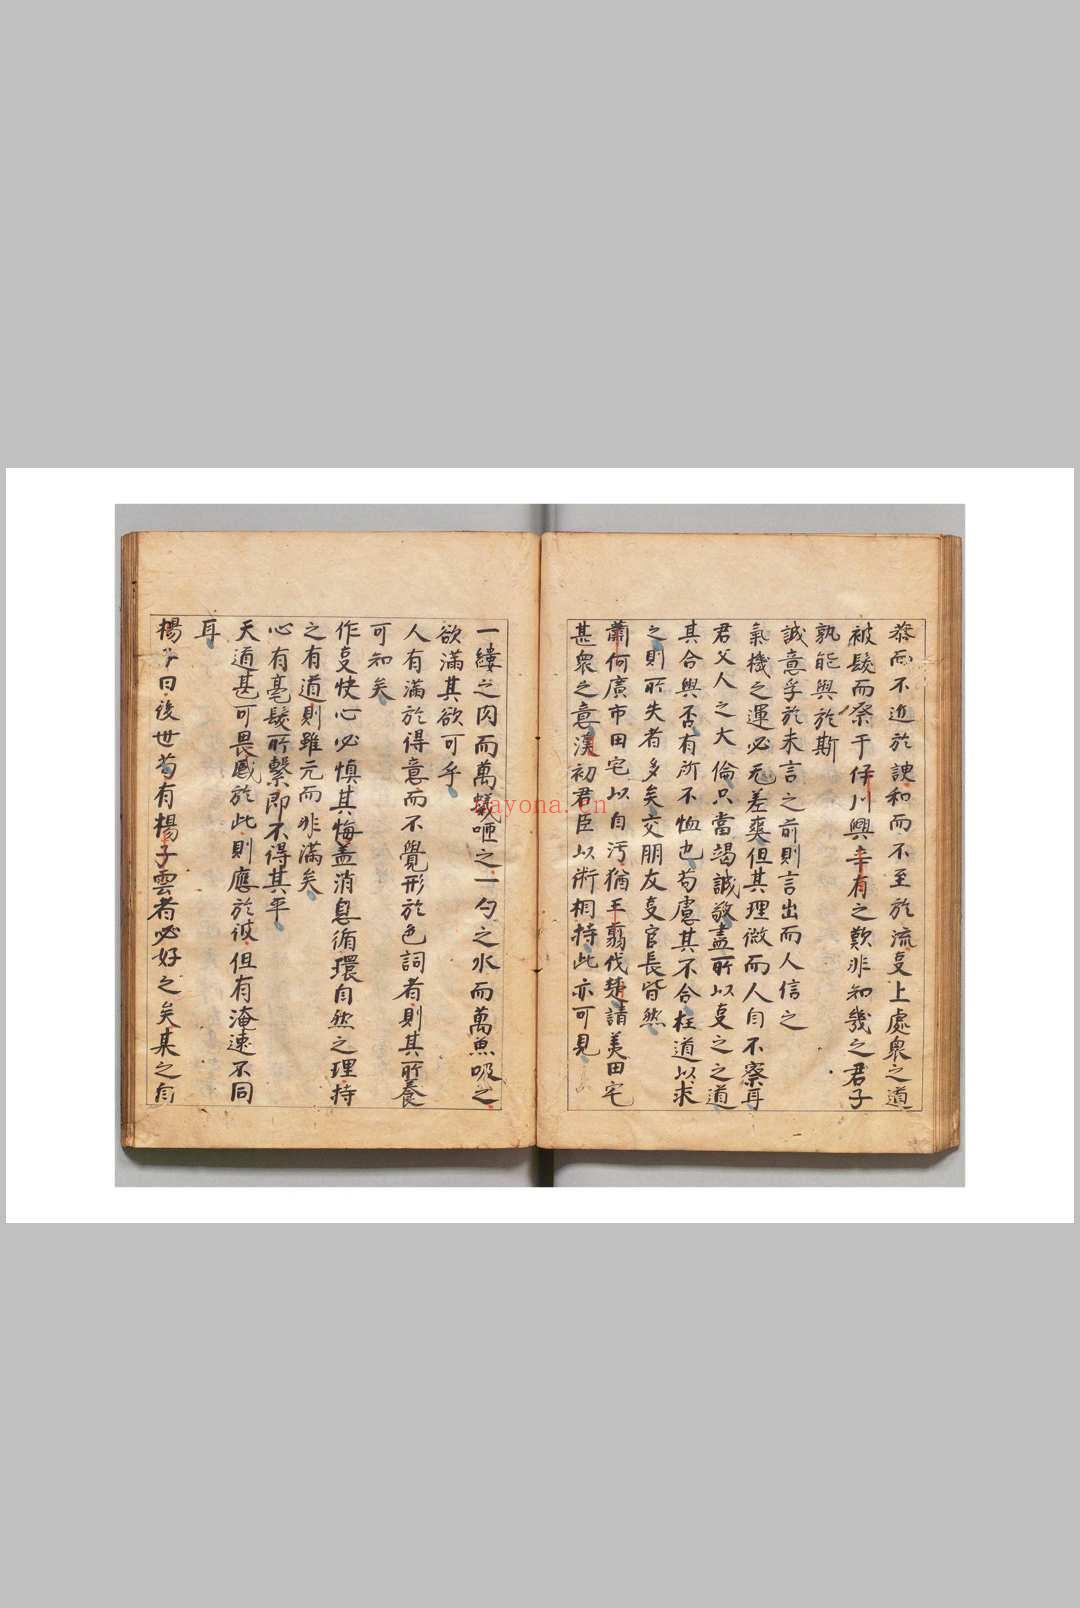 恭而不近於諛和而不至於流㕛上處衆之道
被髮而祭于伊川興辛有之歎非知幾之君子
孰能與於斯
誠意孚於未言之前則言出而人信之
氣機之運必无差爽但其理微而人自不察耳
君父人之大倫只當竭誠敬盡所以㕛之之道
其合與否有所不恤也苟慮其不合枉道以求
之則所失者多矣交朋友㕛官長皆然
蕭何廣市田宅以自污猶王翦伐楚請美田宅
甚衆之意漢初君臣以術相持此亦可見
一縷之肉而萬蟻咂之一勺之水而萬魚吸之
欲滿其欲可乎
人有滿於得意而不覺形於色詞者則其所養
可知矣
作㕛快心必慎其悔盖消息循環自然之理持
之有道則雖亢而非滿矣
心有毫髮所繫即不得其平
天道甚可畏感於此則應於彼但有淹速不同
耳
楊子曰後世苟有楊子雲者必好之矣某之自
bayona.cn